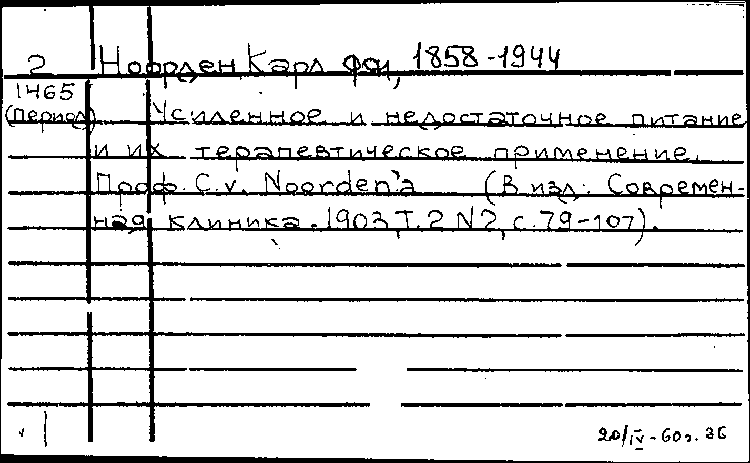 2 Ноорден, Карл фон, 1858-1944
1465
(период) Усиленное и недостаточное питание
и их терапевтическое применение.
Проф. C. v. Noorden'а (В изд.: Современ-
ная клиника. 1903, Т. 2 N 2, с. 79-107).
20/IV-60г.